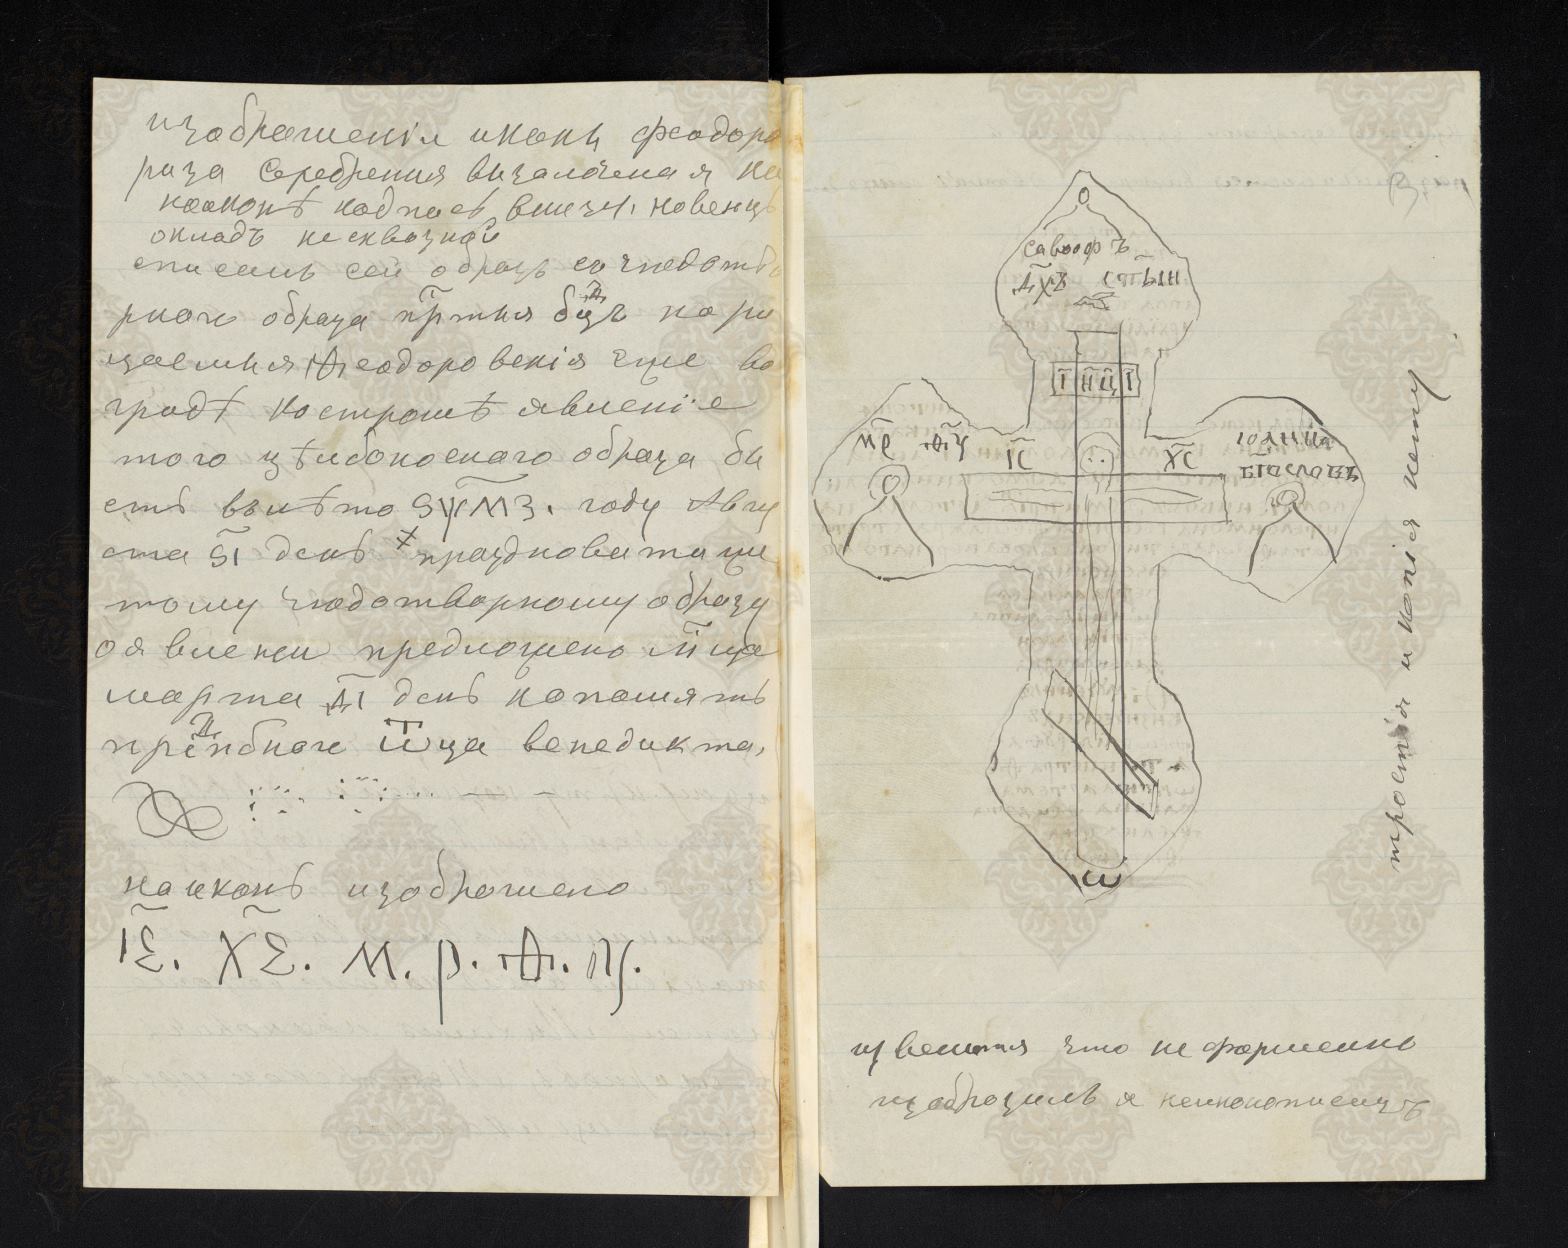 изображенія иконы феодоро
риза серебреная вызалочена я на
иконѣ надпись внизу, новенцъ
окладъ несквазной
списанъ сей образъ со чюдотво
рнаго образа прⷭ҇тыя бцⷣы нари
цаемыя Ѳеодоровскія еже во
градѣ Костромѣ явленіе
того цѣлбоноснаго образа бы
сть влѣто ҂ѕѱмз. году Авгу
ста ѕ҃і день праздновати же
тому чюдотворному образу
оявлении предложено мⷭ҇ца
марта д҃і день напамять
прпⷣбнаго ѿца венедикта,
на иконѣ изображено
ІС. ХС. М. Р. Ѳ. У.
Саваофъ
Дх҃ъ Ст҃ый
І Н Ц І
МР ѲУ
ІС
ХС
ІОАННЪ
БГОСЛОВЪ
тростія и копія нету
извените что не форменно
изобразилъ я неиконописецъ